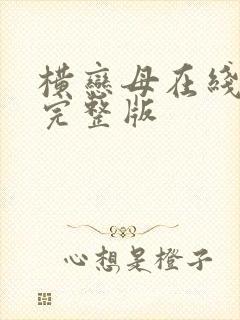 横戀母在綫
完整版
心想是橙子